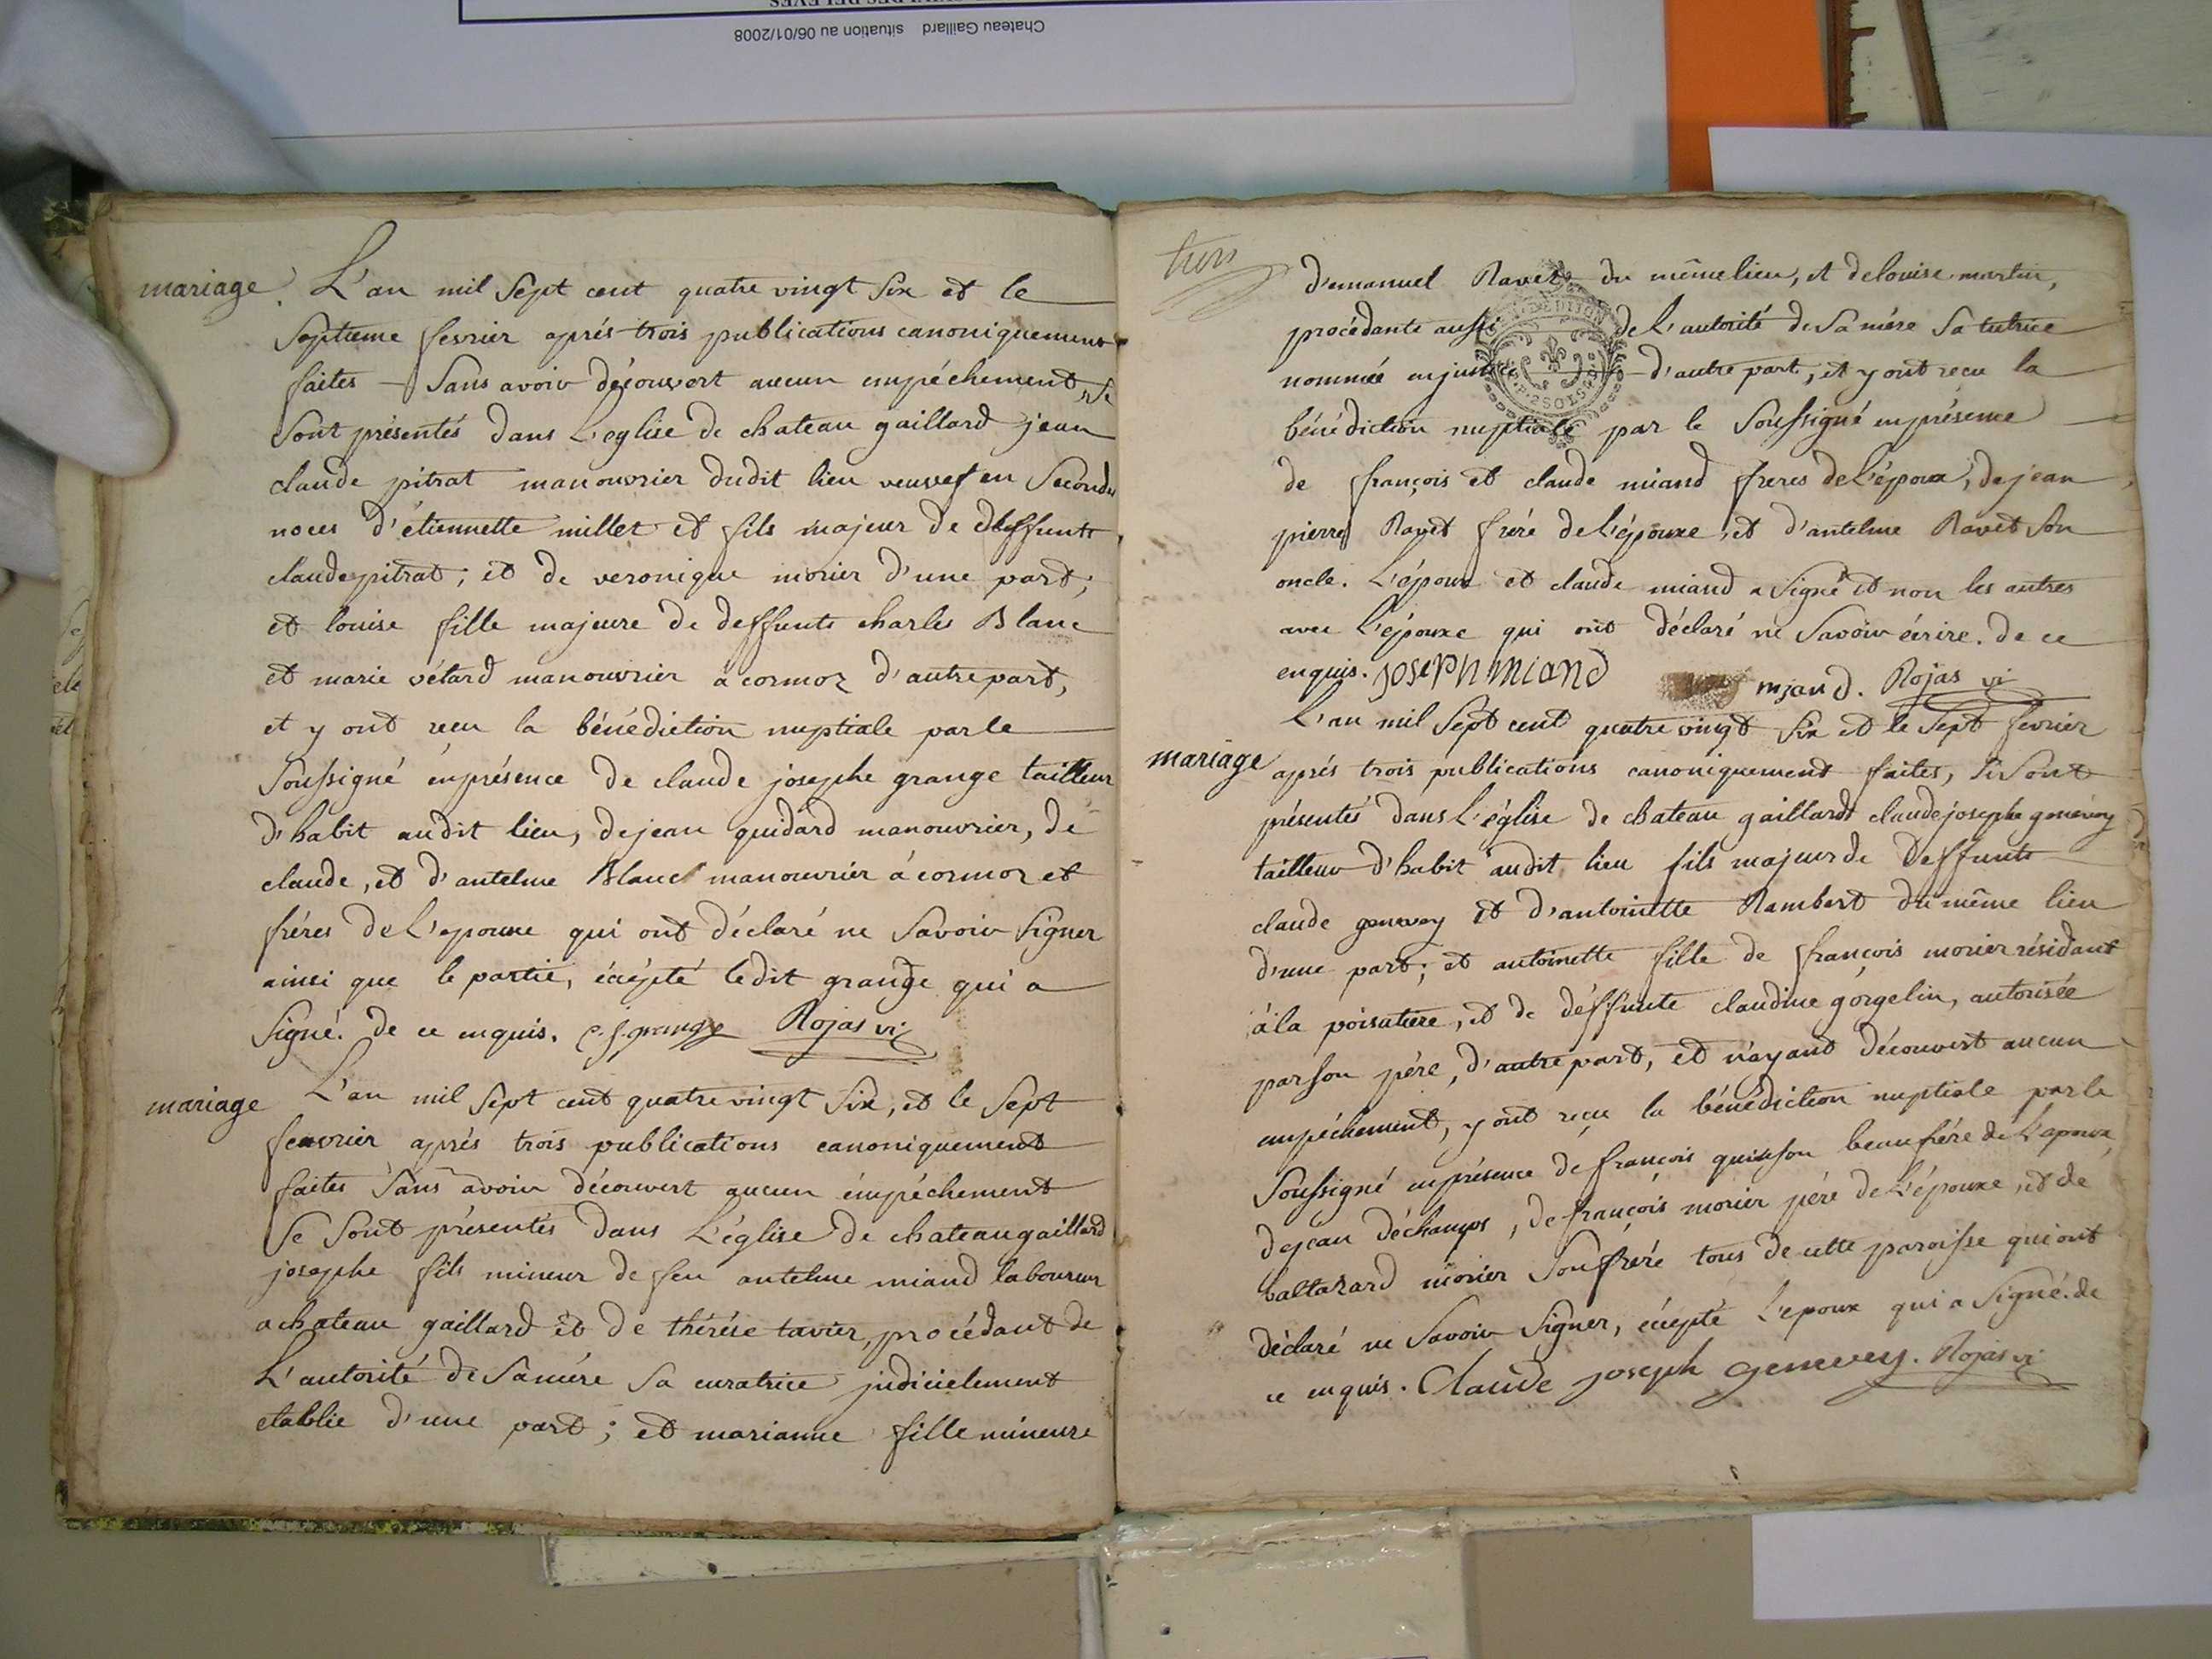 Chateau Gaillard situation au 06/01/2008
mariage. L'an mil Sept cent quatre vingt Six et le
Septieme fevrier aprés trois publications canoniquement
faites Sans avoir découvert aucun empéchement, Se
Sont présentés dans L'eglise de chateau gaillard jean
claude pitrat manouvrier dudit lieu veuvef en Secondes
noces d'étiennette millet et fils majeur de deffunts
claude pitrat, et de veronique morier d'une part;
et louise fille majeure de deffunts charles Blanc
et marie vétard manouvrier a cormoz d'autre part,
et y ont recu la bénédiction nuptiale par le
Soussigné enprésence de claude josephe grange tailleur
d'habit audit lieu, dejean guidard manouvrier, de
claude, et d'antelme Blanc manouvrier á cormoz et
fréres de L'epouxe qui ont déclaré ne Savoir Signer
ainsi que le partie, éxépté ledit grange qui a
Signé. de ce enquis. c. j. grange Rojas vi
mariage L'an mil Sept cent quatre vingt Six, et le Sept
feuvrier aprés trois publications canoniquement
faites Sans avoir découvert aucun émpéchement
Se Sont présentés dans L'église de chateaugaillard
josephe fils mineur de feu antelme miand laboureur
a chateau gaillard et de thérése tavier, procédant de
L'autorité de Samére Sa curatrice judicielement
etablie d'une part; et marianne fille mineure
trois
d'emanuel Ravet du même lieu, et delouise martin,
procédante aussi de L'autorité de Sa mére Sa tutrice
nommée enjustice d'autre part, et y ont recu la
bénédiction nuptiale par le Soussigné enprésence
de françois et claude miand freres de L'époux, de jean
pierre Ravet frére de L'épouxe, et d'antelme Ravet Son
oncle. L'époux et claude miand a Signé et non les autres
avec L'épouxe qui ont déclaré ne Savoir écrire. de ce
enquis. joseph miand miand. Rojas vi
L'an mil Sept cent quatre vingt Six et le Sept fevrier
mariage aprés trois publications canoniquement faites, Se Sont
présentés dans L'église de chateau gaillard claude josephe genevey
tailleur d'habit audit lieu fils majeur de deffunts
claude genevey et d'antoinette Rambert du même lieu
d'une part; et antoinette fille de françois morier résidant
á la poisatiere, et de deffunte claudine gorgelin, autorisée
par son pére, d'autre part, et n'ayant découvert aucun
empéchement, y ont reçu la bénédiction nuptiale par le
Soussigné enprésence de françois quinson beaufrére de L'epoux,
dejean déchamps, de françois morier pére de L'épouxe, et de
baltazard morier Son frére tous de cette paroisse qui ont
déclaré ne Savoir Signer, éxépté L'epoux qui a Signé. de
ce enquis. Claude joseph genevey. Rojas vi